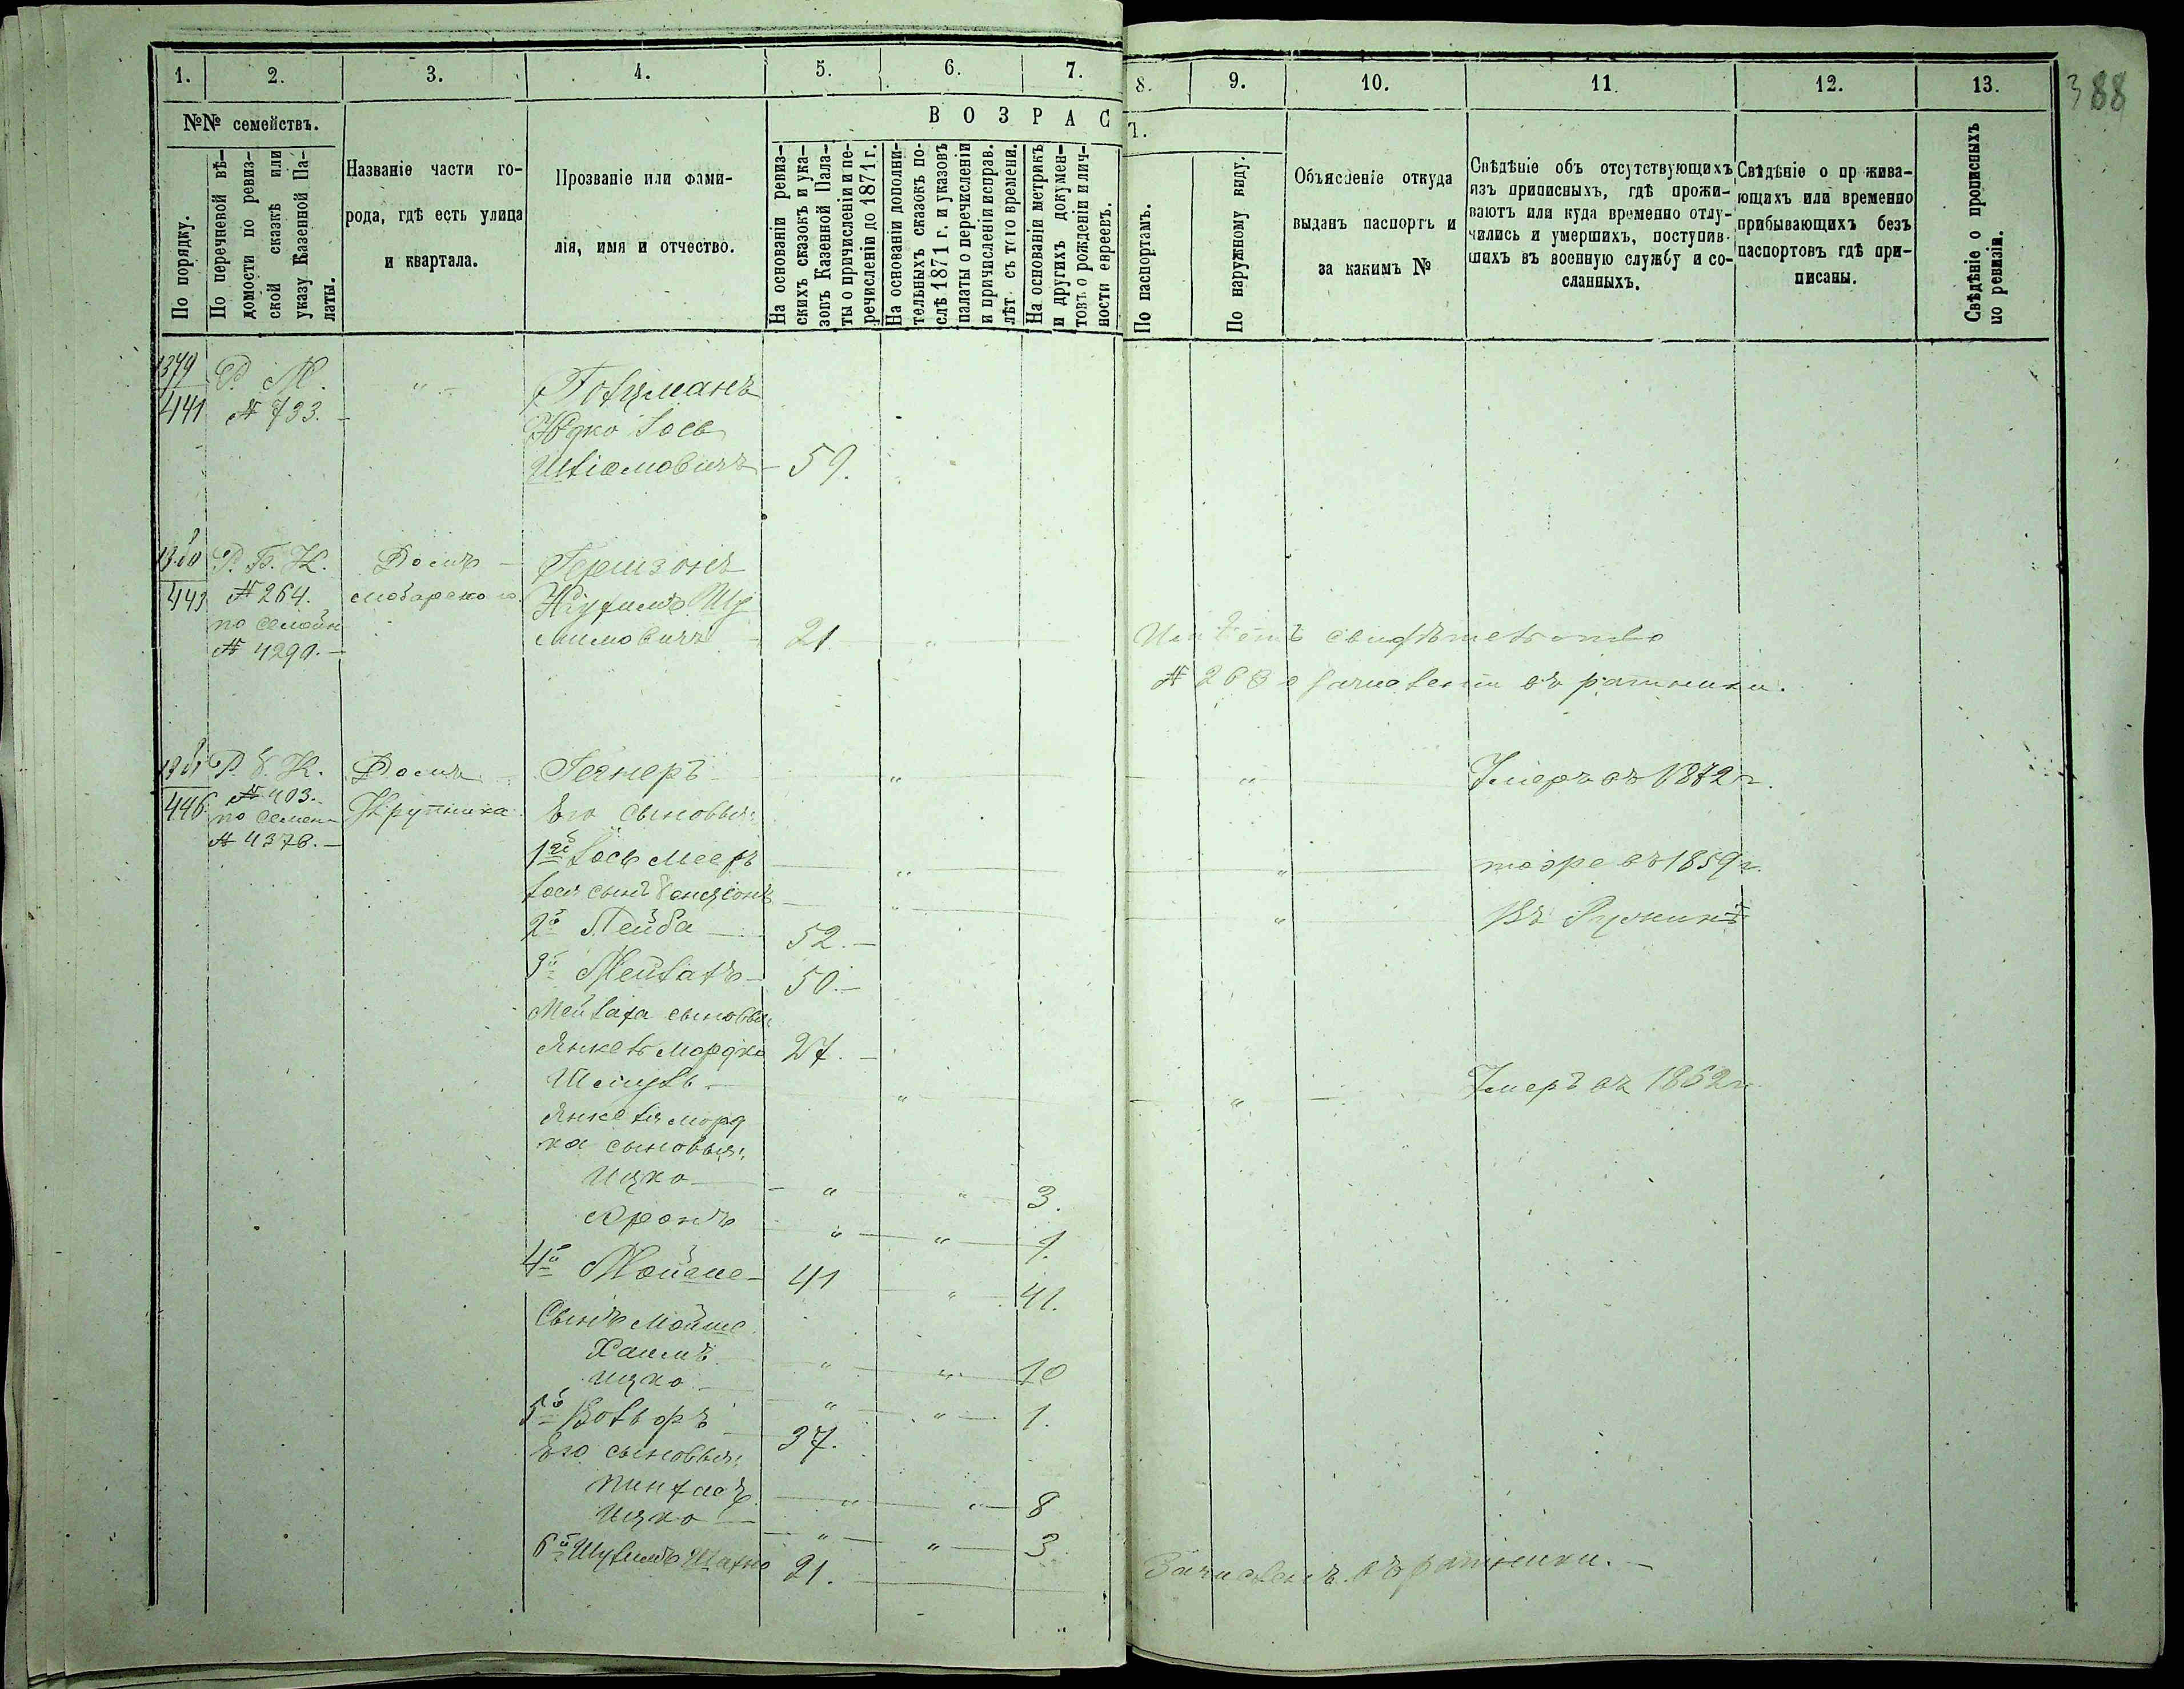 388
1. 2. 3. 4. 5. 6. 7. 8. 9. 10. 11. 12. 13.
№№ семействъ.
По порядку.
По перечневой вѣ-
домости по ревиз-
ской сказкѣ или
указу Казенной Па-
латы.
Названіе части го-
рода, гдѣ есть улица
и квартала.
Прозваніе или фами-
лія, имя и отчество.
ВОЗРАСТ.
На основаніи ревиз-
скихъ сказокъ и ука-
зовъ Казенной Пала-
ты о причисленіи и пе-
речисленіи до 1871 г.
На основаніи дополни-
тельныхъ сказокъ по-
слѣ 1871 г. и указовъ
палаты о перечисленіи
и причисленіи исправ.
лѣт съ того времени.
На основаніи метрикъ
и другихъ докумен-
товъ о рожденіи и лич-
ности евреевъ.
По паспортамъ.
По наружному виду.
Объясненіе откуда
выданъ паспортъ и
за какимъ №
Свѣдѣніе объ отсутствующихъ
язъ приписныхъ, гдѣ прожи-
ваютъ или куда временно отлу-
чились и умершихъ, поступив-
шихъ въ военную службу и со-
сланныхъ.
Свѣдѣніе о пр жива-
ющихъ или временно
прибывающихъ безъ
паспортовъ гдѣ при-
писаны.
Свѣдѣніе о прописныхъ
по ревизіи.
1379 Р. М. " Гольцманъ
441 № 733.
Юдко Іось
59.
1380 Р. Б. К. Домъ Гершзонъ
443 № 264.
по семейн
№ 4290. 21 Имѣетъ свидѣтельство
№ 268 о зачисленіи въ ратники.
1381 Р. Б. К. Домъ Гехнеръ " " Умеръ въ 1872 г.
446 № 403. Крупника Его сыновья:
по семен
№ 4376.
1й Іось Мееръ " " тоже въ 1859 г.
Іося сынъ Бенціонъ " " Въ Ружинѣ
2й Лейба 52.
3й Мейлахъ 50.
Мейлаха сыновья:
Янкель Мордко 27.
Шмуль " " Умеръ въ 1862 г.
Янкеля Морд
ка сыновья:
Ицко " " 3.
Аронъ " " 1.
4й Мойше 41 " 41.
Сынъ Мойше
Хаимъ " " 10
Ицко " " 1.
5й Вольфъ 37.
Его сыновья:
Пинхасъ " " 8
Ицко " " 3
6й Шулимъ Шахно 21. Зачисленъ въ ратники.